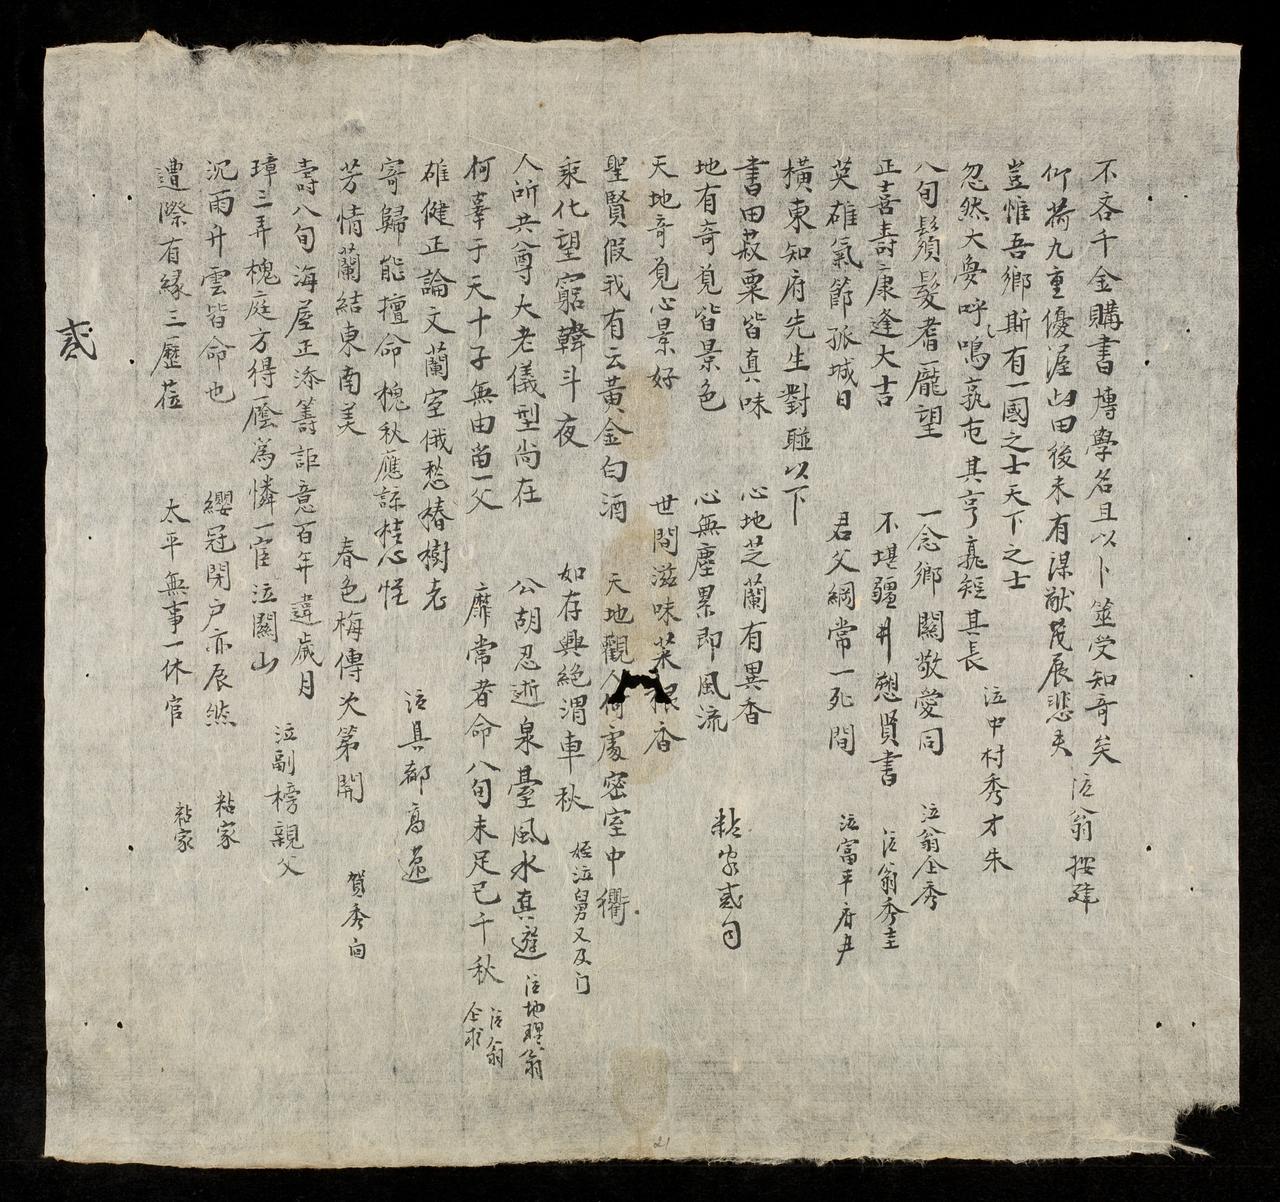 不吝千金購書博學名且以卜筮受知奇矣 泣翁 按建
仰荷九重優渥歸田後未有謀猷茂展悲夫
豈惟吾鄉斯有一國之士天下之士
忽然大奐呼嗚孰屯其亨孰短其長 泣中村秀才朱
八旬鬚髮耆龐望 一念鄉關敬愛同 泣翁仝秀
正喜壽康逢大吉 不堪疆井憩賢書 泣翁秀圭
英雄氣節孤城日 君父綱常一死間 泣富平府尹
橫東知府先生對聯以下
書田菽粟皆真味 心地芝蘭有異香
地有奇覓皆景色 心無塵累即風流 粘家貳句
天地奇覓心景好 世間滋味菜根香
聖賢假我有云黃金白酒 天地觀人何處密室中衢
乘化望窮韓斗夜 如存興絕渭車秋 姪泣舅又及门
人所共尊大老儀型尚在 公胡忍逝泉臺風水真遊 泣地理翁
何辜于天十子無由當一父 靡常者命八旬未足已千秋 泣翁仝求
雄健正論文蘭室俄愁椿樹老
寄歸能擅命槐秋應諒桂心怪 泣具都高
芳情蘭結東南美 春色梅傳次第開 賀秀向
壽八旬海屋正添籌詎意百年違歲月
璋三弄槐庭方得廕為憐一宦泣關山 泣副榜親父
沉雨升雲皆命也 纓冠閉户亦辰然 粘家
遭際有緣三歷莅 太平無事一休官 粘家
貳
21